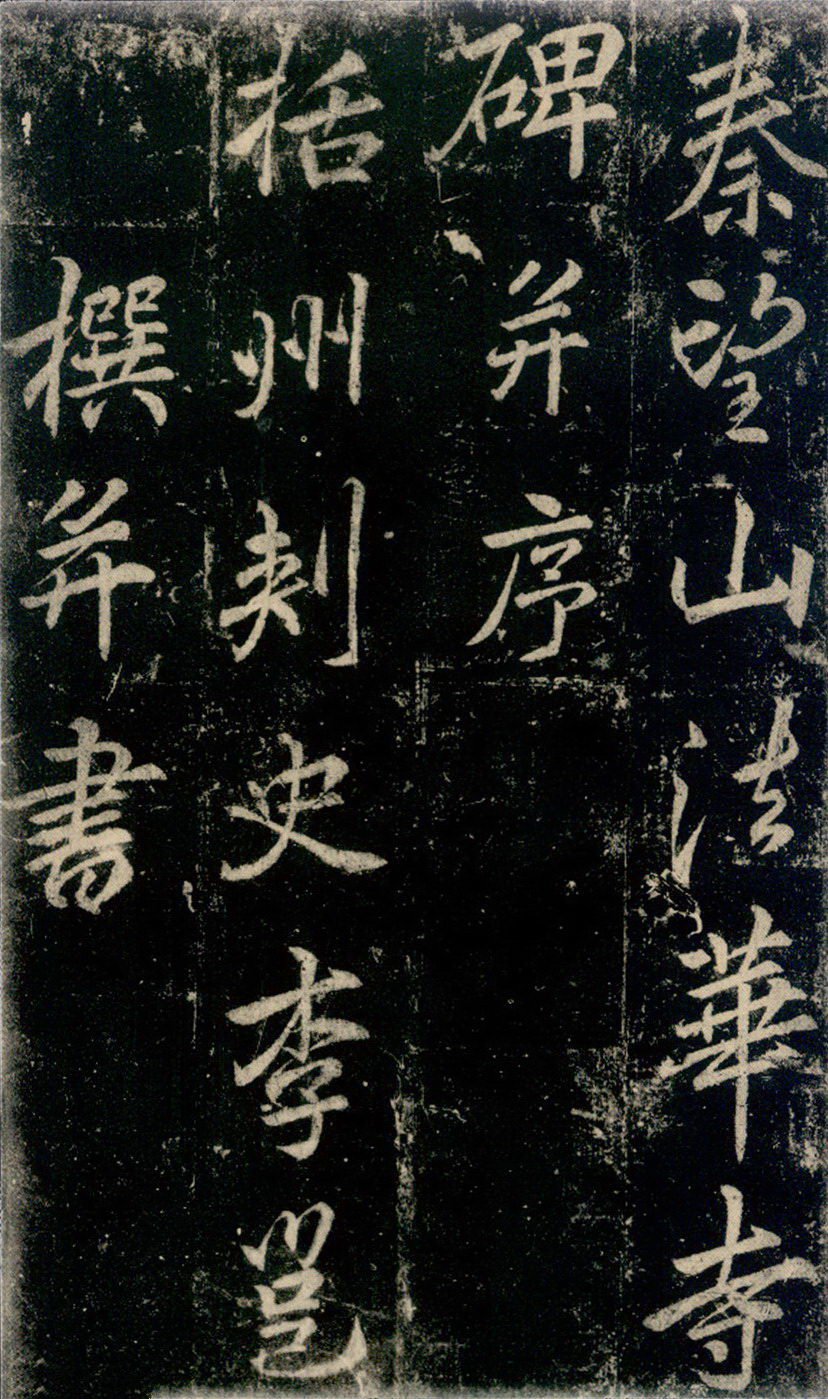 秦望山法華寺
碑并序
括州刺史李邕
撰并書